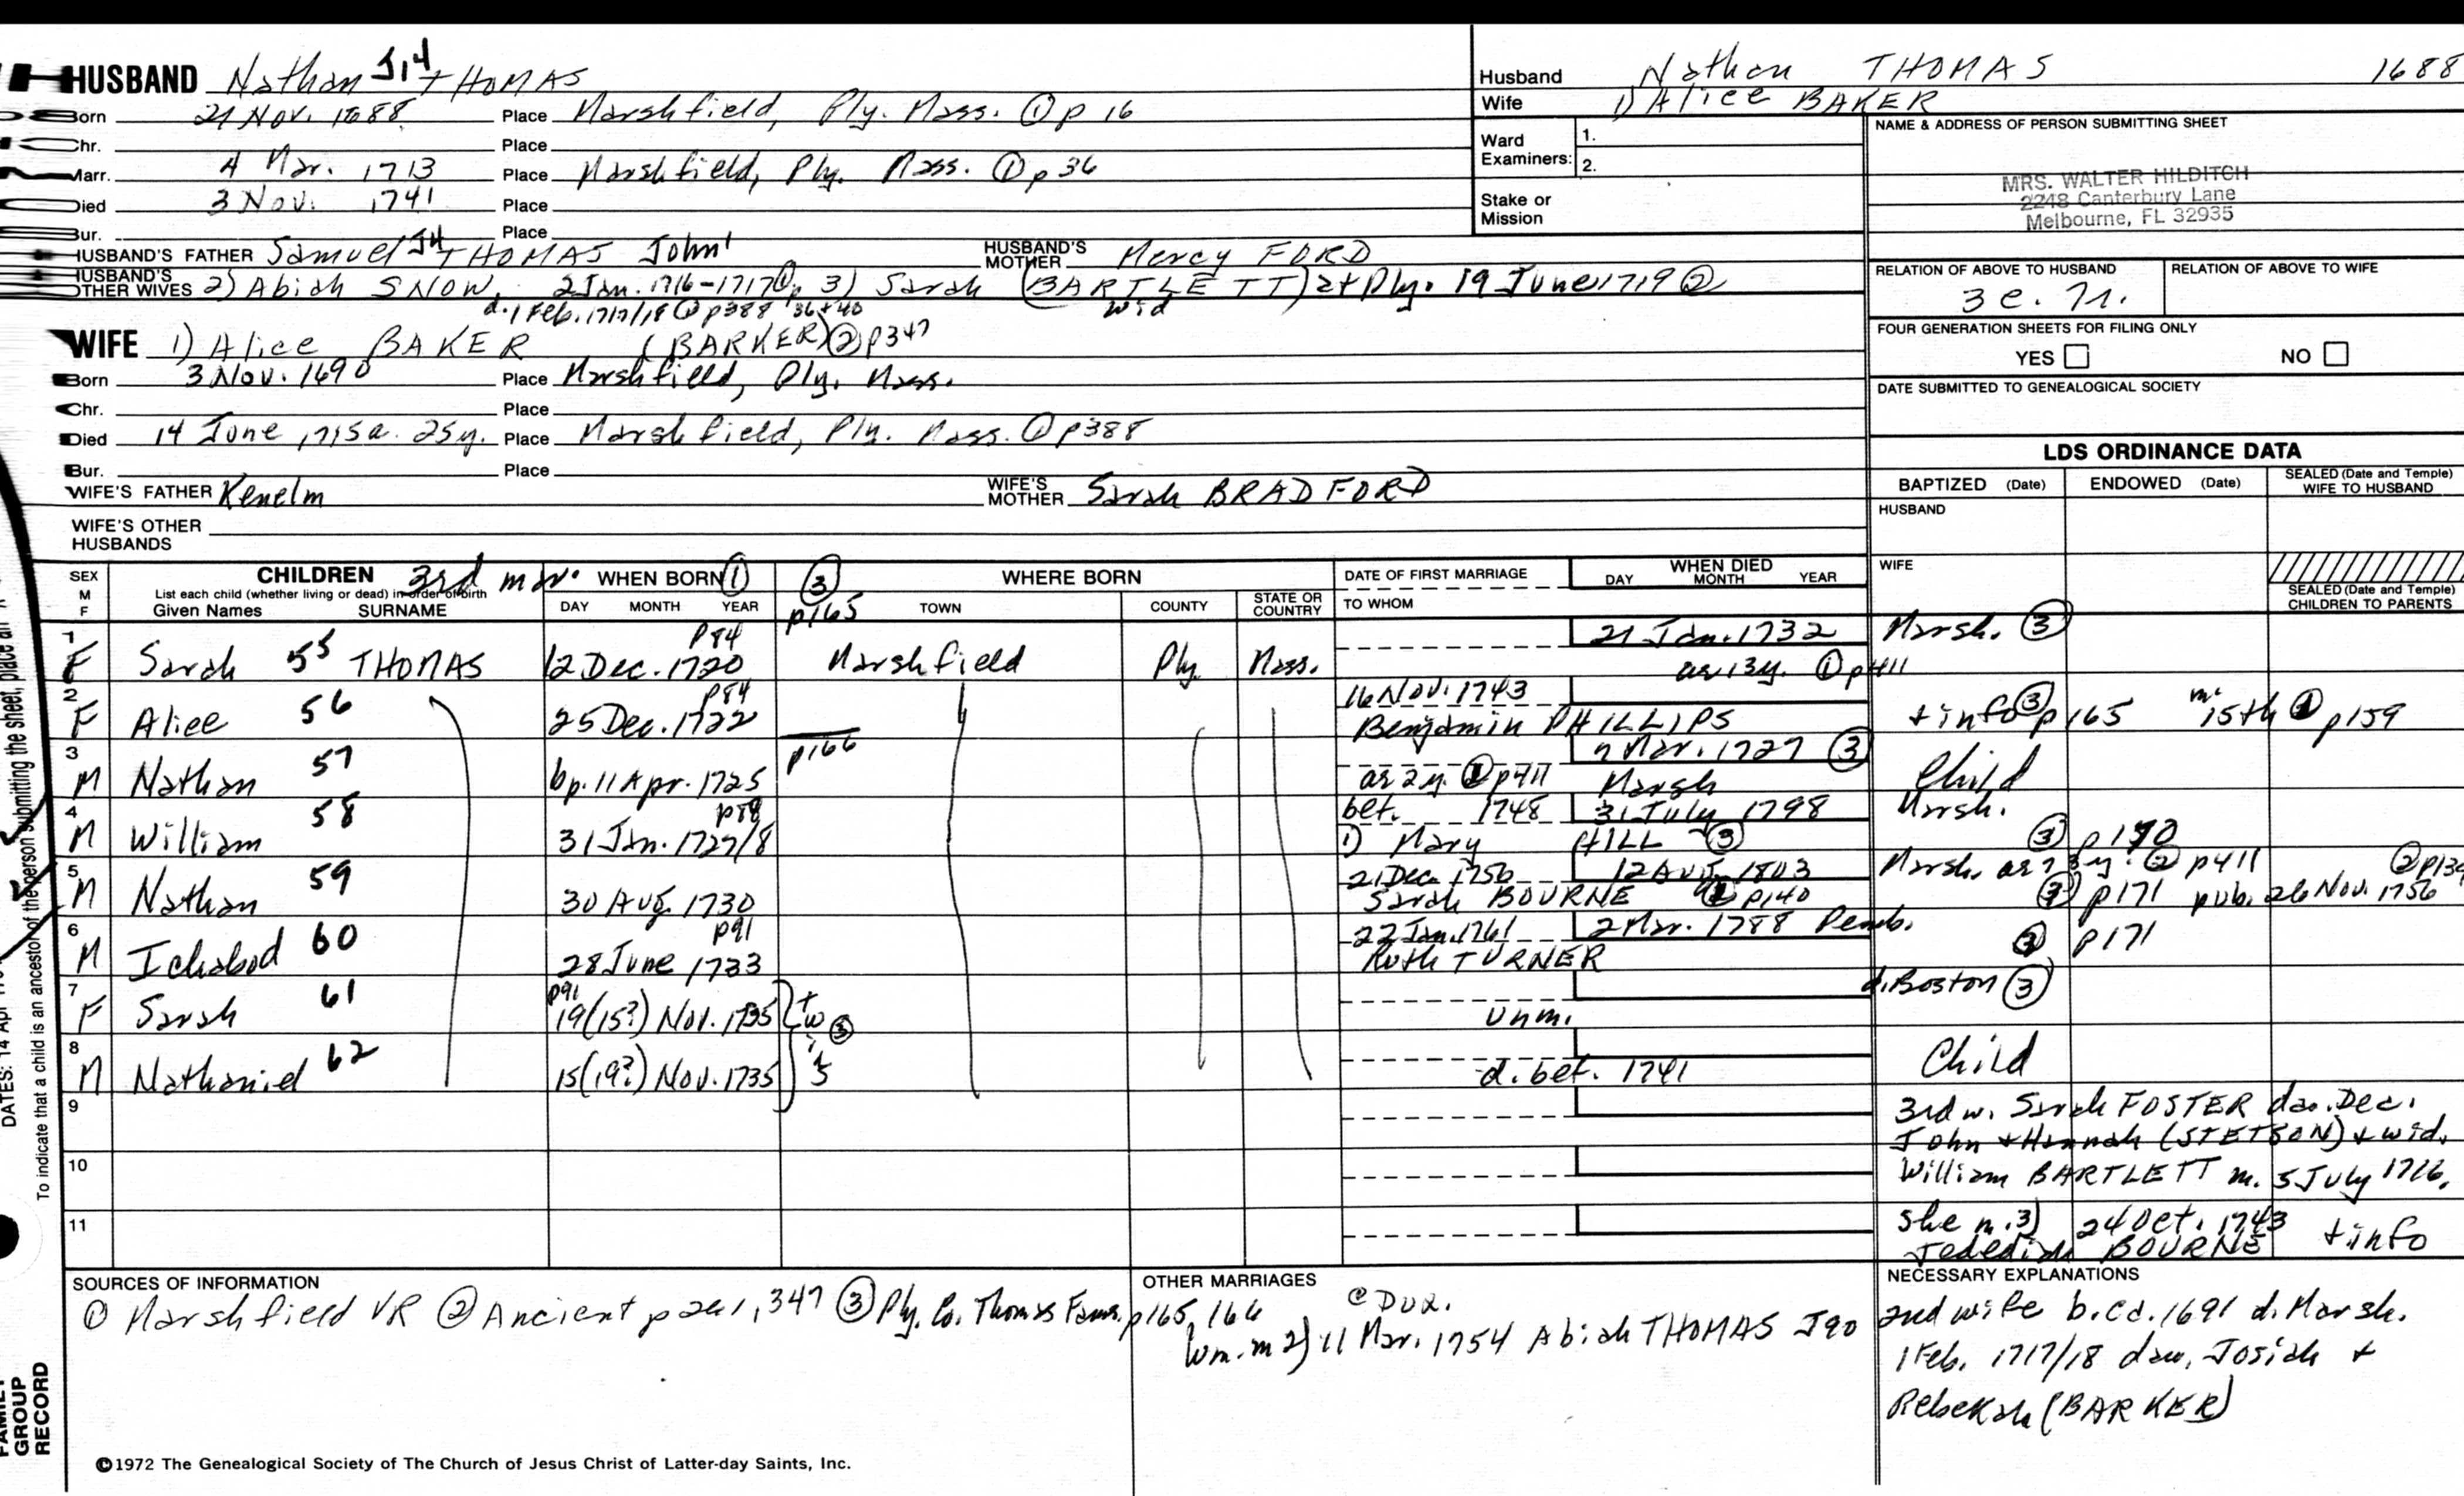 HUSBAND Nathan J14 THOMAS
Born 21 Nov. 1688 Place Marshfield, Ply. Mass. ① p 16
Chr. Place
Marr. 4 Mar. 1713 Place Marshfield, Ply. Mass. ① p 36
Died 3 Nov. 1741 Place
Bur. Place
HUSBAND'S FATHER Samuel J4 THOMAS John¹ HUSBAND'S MOTHER Mercy FORD
HUSBAND'S OTHER WIVES 2) Abiah SNOW, 2 Jan. 1716-1717 ① p 3) Sarah (BARTLETT) at Ply. 19 June 1719 ②
d. 1 Feb. 1717/18 ① p388 36+40 wid
WIFE 1) Alice BAKER (BARKER) ② p347
Born 3 Nov. 1690 Place Marshfield, Ply. Mass.
Chr. Place
Died 14 June 1715 a. 25y. Place Marshfield, Ply. Mass. ① p388
Bur. Place
WIFE'S FATHER Kenelm WIFE'S MOTHER Sarah BRADFORD
WIFE'S OTHER HUSBANDS
Husband Nathan THOMAS 1688
Wife 1) Alice BAKER
Ward Examiners: 1.
2.
Stake or Mission
NAME & ADDRESS OF PERSON SUBMITTING SHEET
MRS. WALTER HILDITCH
2248 Canterbury Lane
Melbourne, FL 32935
RELATION OF ABOVE TO HUSBAND RELATION OF ABOVE TO WIFE
FOUR GENERATION SHEETS FOR FILING ONLY
YES NO
DATE SUBMITTED TO GENEALOGICAL SOCIETY
LDS ORDINANCE DATA
BAPTIZED (Date) ENDOWED (Date) SEALED (Date and Temple) WIFE TO HUSBAND
HUSBAND
WIFE
SEALED (Date and Temple) CHILDREN TO PARENTS
SEX M F CHILDREN 3rd mar. WHEN BORN ① ③ p165 WHERE BORN DATE OF FIRST MARRIAGE WHEN DIED
List each child (whether living or dead) in order of birth
Given Names SURNAME DAY MONTH YEAR TOWN COUNTY STATE OR COUNTRY TO WHOM DAY MONTH YEAR
1 p84 21 Jan. 1732 Marsh. ③
F Sarah 55 THOMAS 12 Dec. 1720 Marshfield Ply. Mass. as 13y. ① p411
2 p84 16 Nov. 1743
F Alice 56 25 Dec. 1722 Benjamin PHILLIPS + info ③ p165 m. 15th ① p159
3 p166 7 Mar. 1727 ③
M Nathan 57 bp. 11 Apr. 1725 as 2y. ① p411 Marsh Child
4 p89 bef. 1748 31 July 1798 Marsh.
M William 58 31 Jan. 1727/8 1) Mary HILL ③ ③ p170
5 21 Dec. 1756 12 Aug. 1803 Marsh. as 73y. ② p411 ② p134
M Nathan 59 30 Aug. 1730 Sarah BOURNE p140 ③ p171 pub. 26 Nov. 1756
6 p91 22 Jan. 1761 2 Mar. 1788 Pemb.
M Ichabod 60 28 June 1733 Ruth TURNER ③ p171
7 p91 d. Boston ③
F Sarah 61 19(15?) Nov. 1735 twins ③ unm.
8
M Nathaniel 62 15(19?) Nov. 1735 d. bef. 1741 Child
9 3rd w. Sarah FOSTER dau. Dea.
John + Hannah (STETSON) + wid.
10 William BARTLETT m. 5 July 1716.
11 She m. 3) 24 Oct. 1743
Jedediah BOURNE + info
SOURCES OF INFORMATION
① Marshfield VR ② Ancient 347 ③ Ply. Co. Thomas Fams. p165, 166
OTHER MARRIAGES
@ Dux.
Wm. m 2) 11 Mar. 1754 Abiah THOMAS J90
NECESSARY EXPLANATIONS
2nd wife b. ca. 1691 d. Marsh.
1 Feb. 1717/18 dau. Josiah +
Rebekah (BARKER)
©1972 The Genealogical Society of The Church of Jesus Christ of Latter-day Saints, Inc.
To indicate that a child is an ancestor of the person submitting the sheet, place an
FAMILY GROUP RECORD